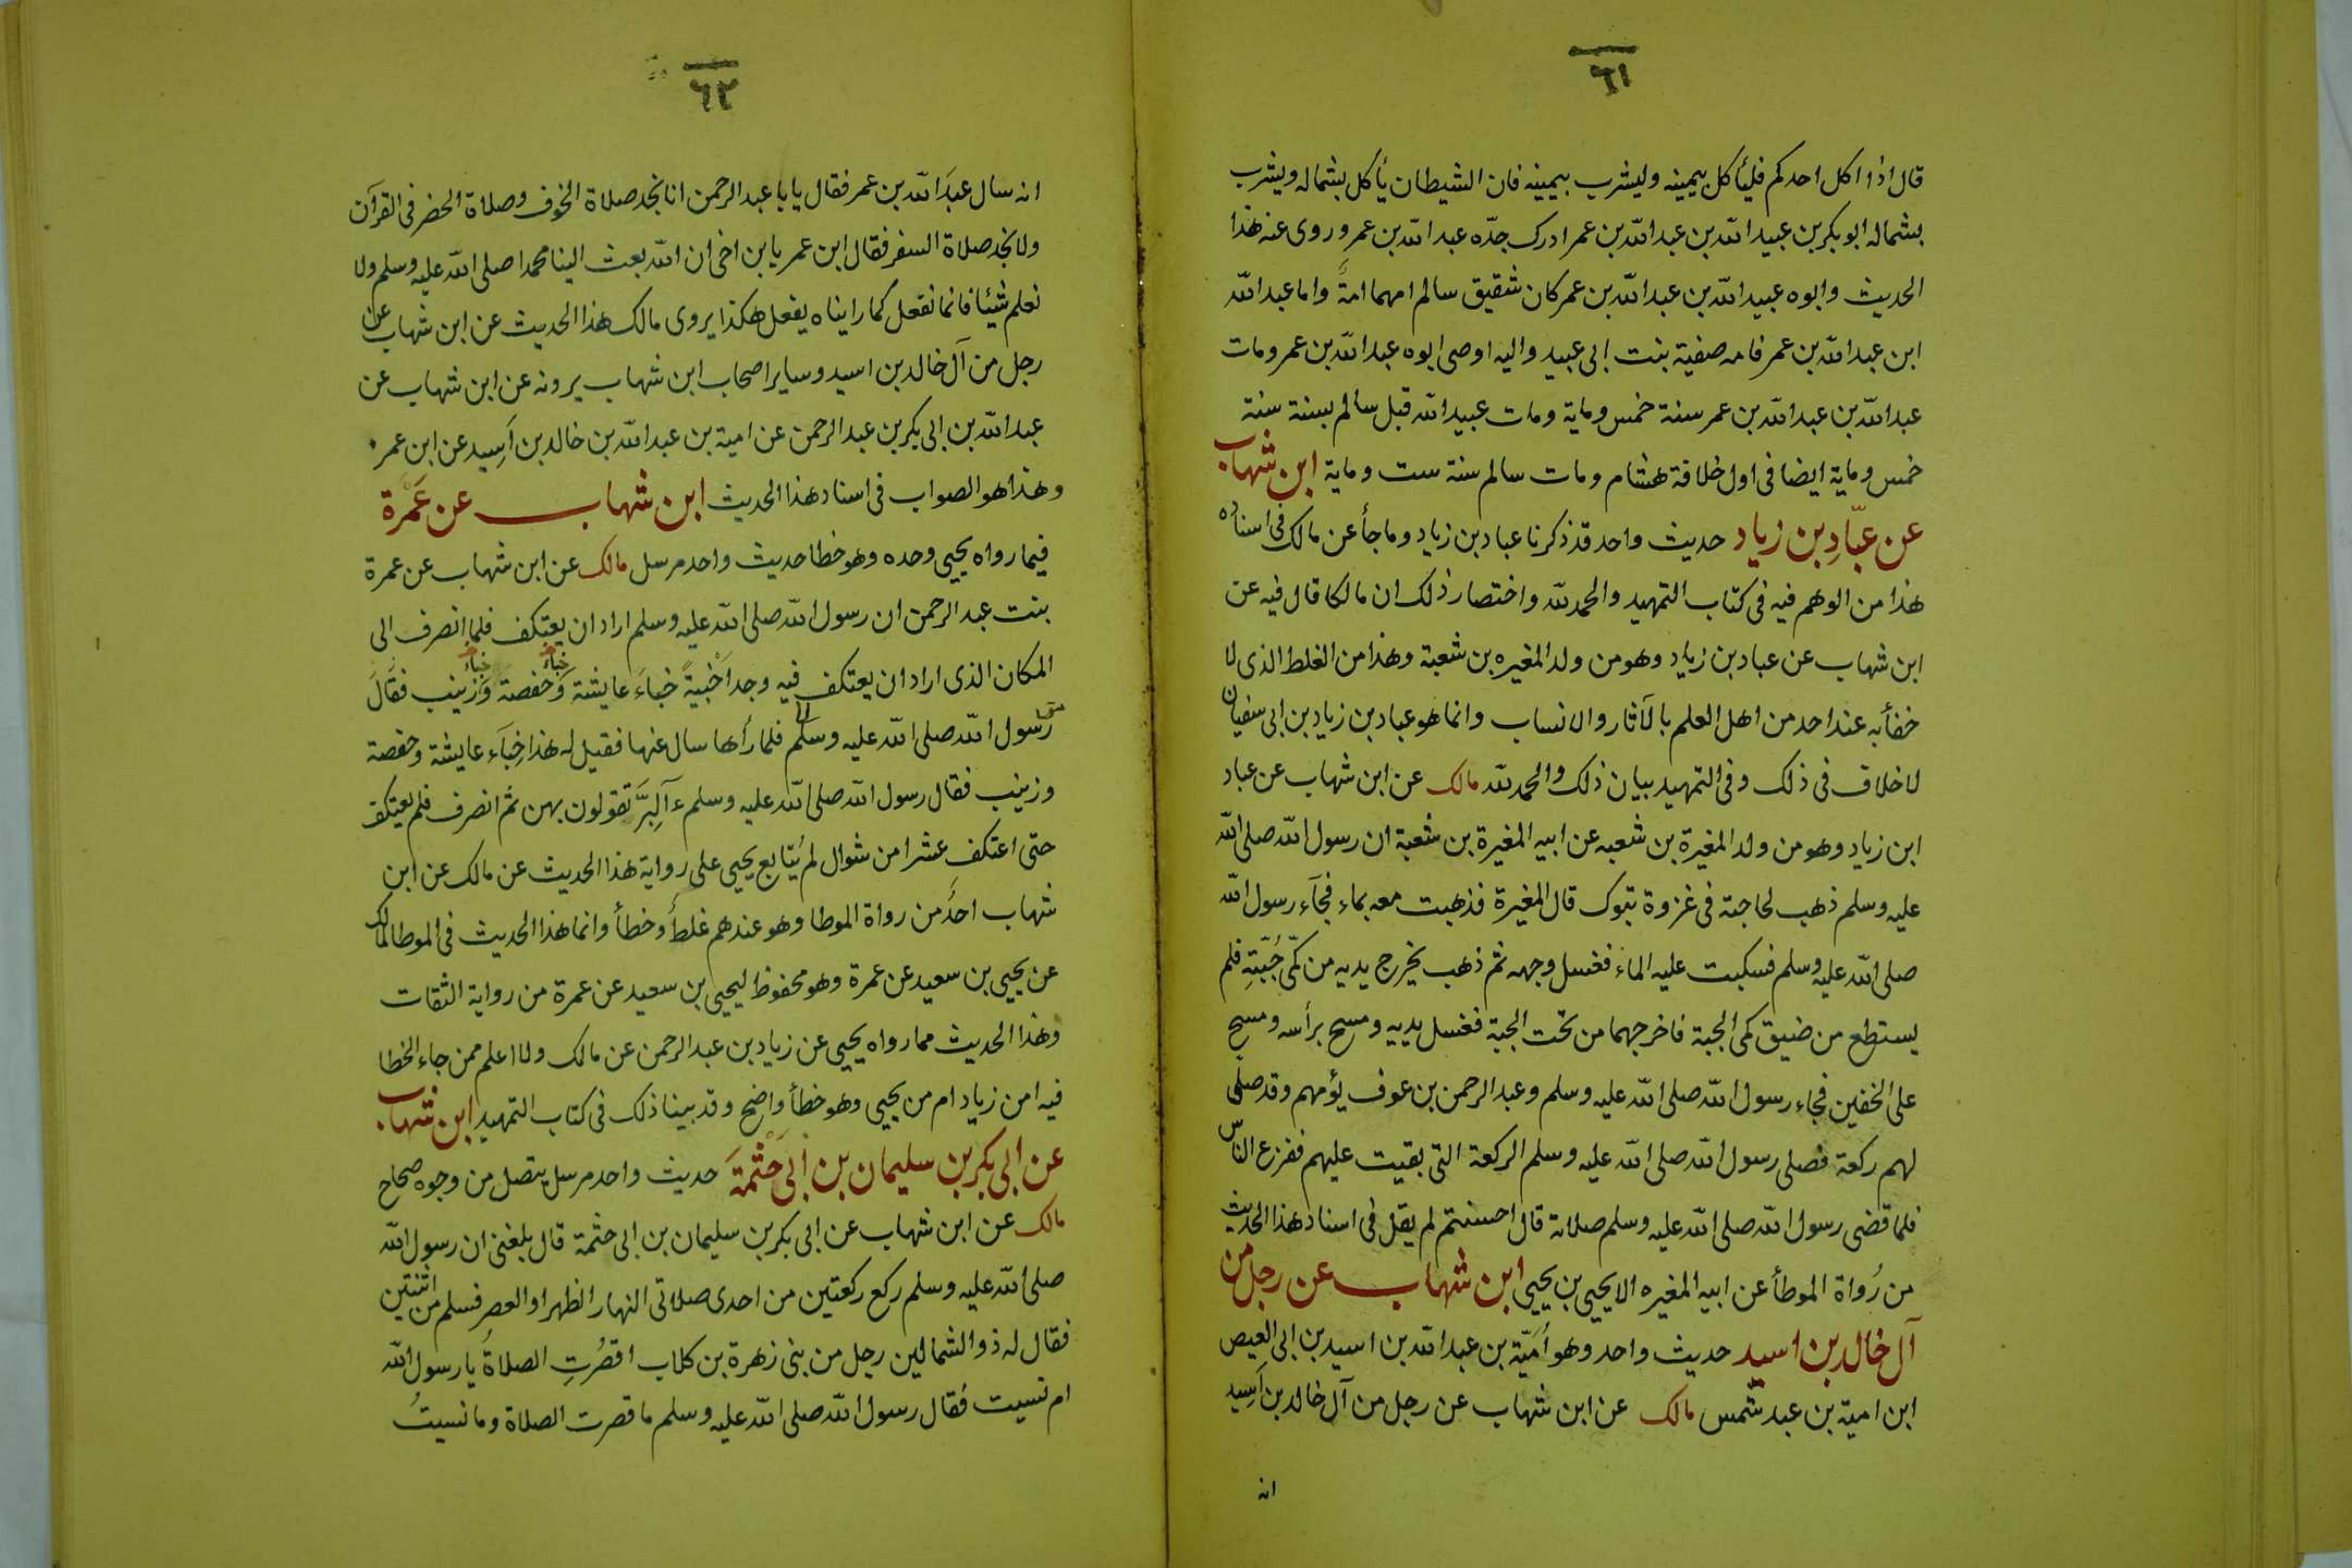 ٦١
قال اذا اكل احدكم فليأكل بيمينه وليشرب بيمينه فان الشيطان يأكل بشماله ويشرب
بشماله ابو بكر بن عبيد الله بن عبد الله بن عمر ادرك جدّه عبد الله بن عمر وروى عنه هذا
الحديث وابوه عبيد الله بن عبد الله بن عمر كان شقيق سالم امهما امةً واما عبد الله
ابن عبد الله بن عمر فامه صفية بنت ابى عبيد واليه اوصى ابوه عبد الله بن عمر ومات
عبد الله بن عبد الله بن عمر سنة خمس وماية ومات عبيد الله قبل سالم بسنة سنة
خمس وماية ايضا فى اول خلافة هشام ومات سالم سنة ست وماية ابن شهاب
عن عبّادِ بن زياد حديث واحد قد ذكرنا عباد بن زياد وما جأ عن مالك فى اسناده
هذا من الوهم فيه فى كتاب التمهيد والحمد لله واختصار ذلك ان مالكا قال فيه عن
ابن شهاب عن عباد بن زياد وهو من ولد المغيره بن شعبة وهذا من الغلط الذى لا
خفأبه عند احد من اهل العلم بالآثار والانساب وانما هو عباد بن زياد بن ابى سفيان
لا خلاف فى ذلك وفى التمهيد بيان ذلك والحمد لله مالك عن ابن شهاب عن عباد
ابن زياد وهو من ولد المغيرة بن شعبه عن ابيه المغيرة بن شعبة ان رسول الله صلى الله
عليه وسلم ذهب لحاجته فى غزوة تبوك قال المغيرة فذهبت معه بماء فجآء رسول الله
صلى الله عليه وسلم فسكبت عليه الماء فغسل وجهه ثم ذهب يخرج يديه من كمّى جُبّتِهِ فلم
يستطع من ضيق كمى الجبة فاخرجهما من تحت الجبة فغسل يديه ومسح برأسه ومسح
على الخفين فجاء رسول الله صلى الله عليه وسلم وعبد الرحمن بن عوف يؤمهم وقد صلى
لهم ركعة فصلى رسول الله صلى الله عليه وسلم الركعة التى بقيت عليهم ففزع الناس
فلما قضى رسول الله صلى الله عليه وسلم صلاته قال احسنتم لم يقل فى اسناد هذا الحديث
من رُواة الموطأ عن ابيه المغيره الا يحيى بن يحيى ابن شهاب عن رجل من
آل خالد بن اسيد حديث واحد وهو أُمَيّة بن عبد الله بن اسيد بن ابى العيص
ابن امية بن عبد شمس مالك عن ابن شهاب عن رجل من آل خالد بن اَسِيد
انه
٦٢
انه سال عبدَ الله بن عمر فقال يا با عبد الرحمن انا نجد صلاة الخوف وصلاة الحضر فى القرآن
ولا نجد صلاة السفر فقال ابن عمر يا بن اخى ان الله بعث الينا محمدا صلى الله عليه وسلم ولا
نعلم شيئا فانما نفعل كما رايناه يفعل هكذا يروى مالك هذا الحديث عن ابن شهاب عن
رجل من آل خالد بن اسيد وساير اصحاب ابن شهاب يرونه عن ابن شهاب عن
عبد الله بن ابى بكر بن عبد الرحمن عن امية بن عبد الله بن خالد بن اَسِيد عن ابن عمر
وهذا هو الصواب فى اسناد هذا الحديث ابن شهاب عن عَمْرة
فيما رواه يحيى وحده وهو خطا حديث واحد مرسل مالك عن ابن شهاب عن عمرة
بنت عبد الرحمن ان رسول الله صلى الله عليه وسلم اراد ان يعتكف فلما انصرف الى
المكان الذى اراد ان يعتكف فيه وجد اَخْبيةً خباءَ عايشة وخباءَ حفصة وخباءَ زينب فقال
رسول الله صلى الله عليه وسلم فلما رأها سال عنها فقيل له هذا خِبَآء عايشة وحفصة
وزينب فقال رسول الله صلى الله عليه وسلم ءآلبِرَّ تقولون بهن ثم انصرف فلم يعتكف
حتى اعتكف عشرا من شوال لم يُتابع يحيى على رواية هذا الحديث عن مالك عن ابن
شهاب احدٌ من رواة الموطا وهو عندهم غلطٌ وخطأ وانما هذا الحديث فى الموطا لمالك
عن يحيى بن سعيد عن عمرة وهو محفوظ ليحيى بن سعيد عن عمرة من رواية الثقات
وهذا الحديث مما رواه يحيى عن زياد بن عبد الرحمن عن مالك ولا اعلم ممن جاء الخطا
فيه امن زياد ام من يحيى وهو خطأ واضح وقد بينا ذلك فى كتاب التمهيد ابن شهاب
عن ابى بكر بن سليمان بن أبى حَثْمَةَ حديث واحد مرسل يتصل من وجوه صحاح
مالك عن ابن شهاب عن ابى بكر بن سليمان بن ابى حثمة قال بلغنى ان رسول الله
صلى الله عليه وسلم ركع ركعتين من احدى صلاتى النهار الظهر او العصر فسلم من اثنتين
فقال له ذو الشمالين رجل من بنى زهرة بن كلاب اقصُرتِ الصلاةُ يا رسول الله
ام نسيت فقال رسول الله صلى الله عليه وسلم ما قصرت الصلاة وما نسيتُ